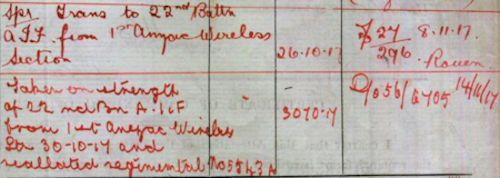 Spr Trans to 22nd Battn
A.I.F. from 1st Anzac Wireless
Section 26.10.17 27/296 8.11.17. Rouen.
Taken on strength
of 22nd Bn A.I.F 30.10.17 /056/6705 14/11/17
from 1st Anzac Wireless
30-10-17 and
reallotted regimental No 5543A